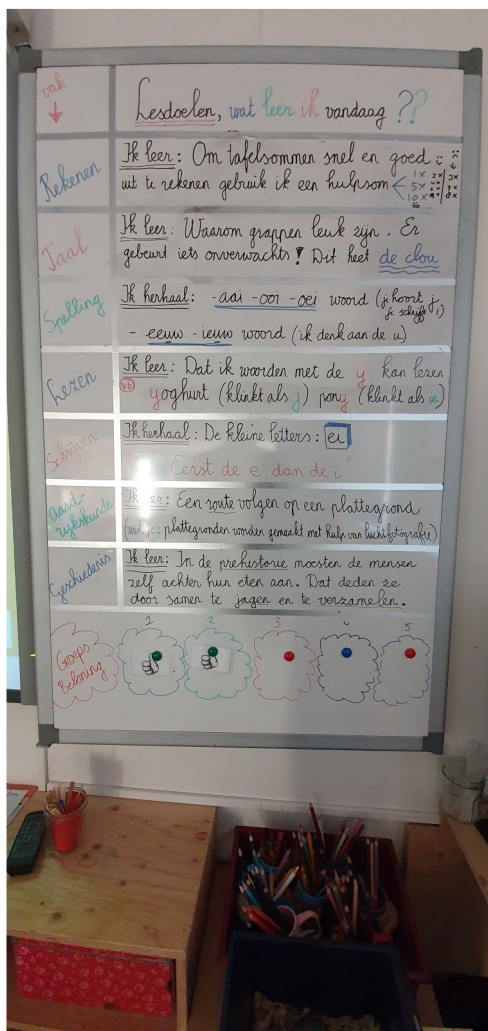 vak
Lesdoelen, wat leer ik vandaag ??
Rekenen
Ik leer: Om tafelsommen snel en goed
uit te rekenen gebruik ik een hulpsom
1x
5x
10x
Taal
Ik leer: Waarom grappen leuk zijn. Er
gebeurt iets onverwachts! Dit heet de clou
Spelling
Ik herhaal: -aai -ooi -oei woord (je hoort j,
je schrijft i)
- eeuw - ieuw woord (ik denk aan de u)
Lezen
Ik leer: Dat ik woorden met de y kan lezen
vb yoghurt (klinkt als j) pony (klinkt als ie)
Schrijven
Ik herhaal: De kleine letters: ei
"Eerst de e, dan de i"
Aard-
rijkskunde
Ik leer: Een route volgen op een plattegrond
plattegronden worden gemaakt met hulp van luchtfotografie)
Geschiedenis
Ik leer: In de prehistorie moesten de mensen
zelf achter hun eten aan. Dat deden ze
door samen te jagen en te verzamelen.
Groeps
Beloning
1 2 3 4 5